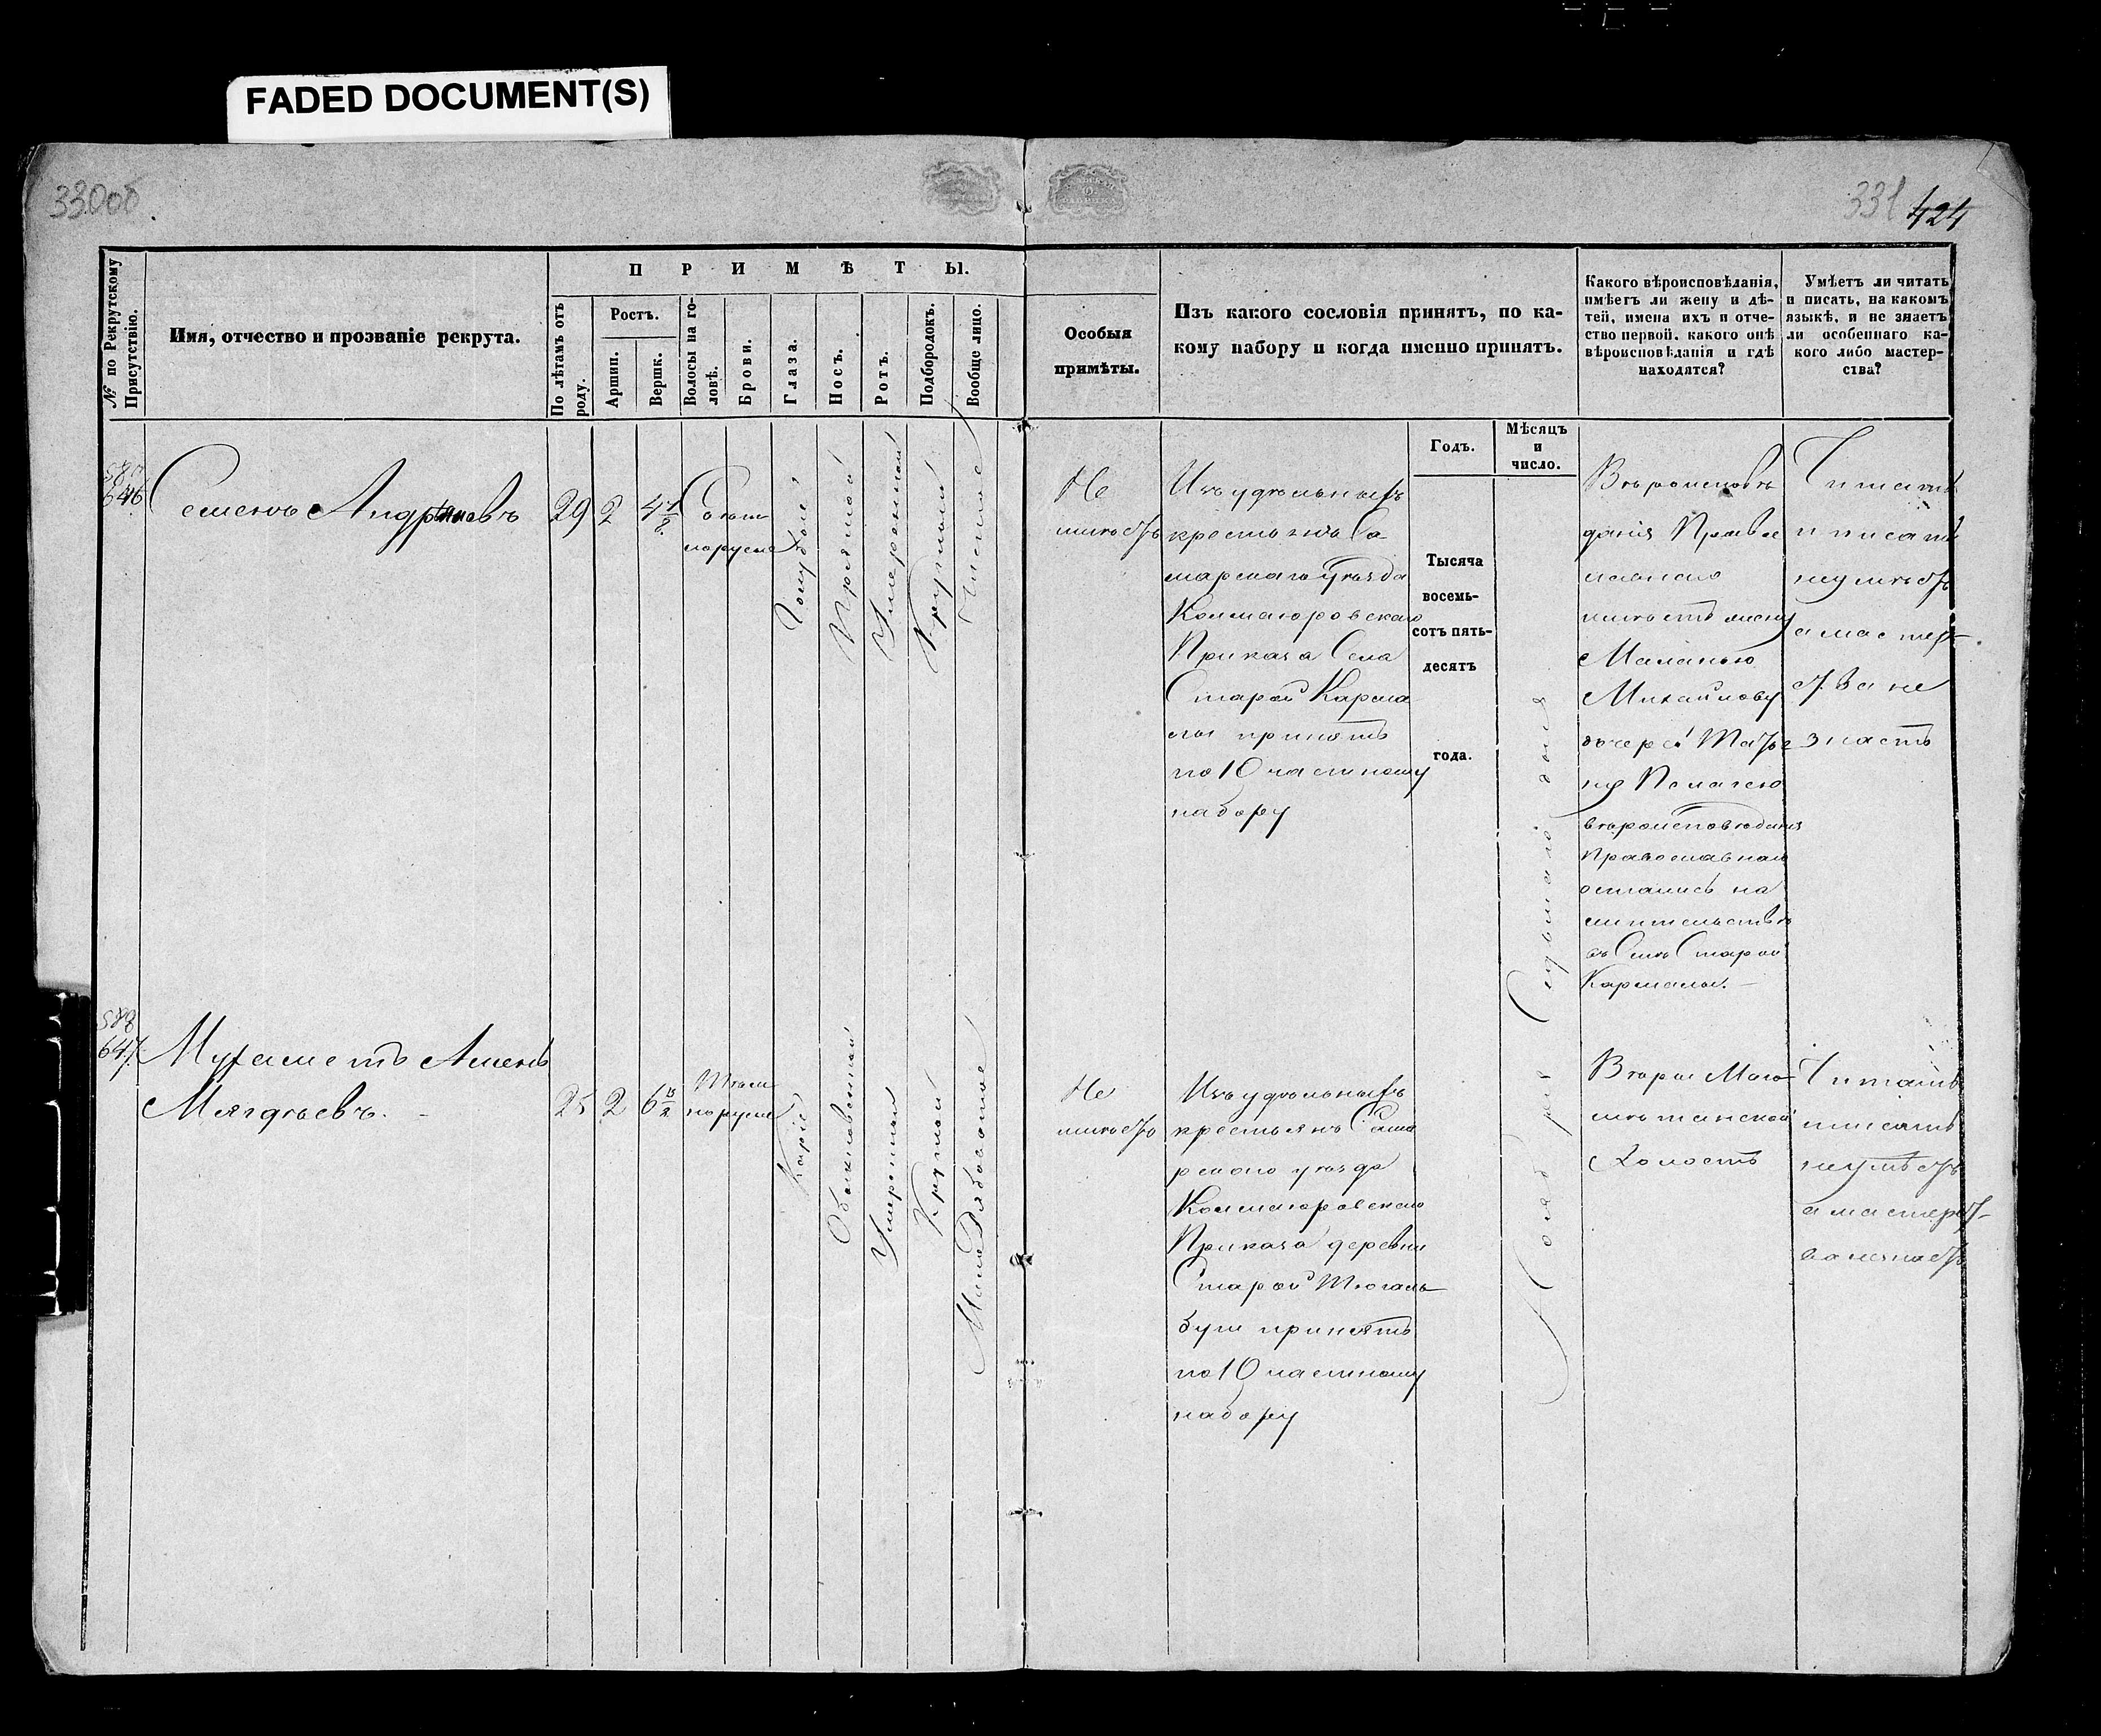 FADED DOCUMENT(S)
330об.
331 424
№ по Рекрутскому Присутствію.
Имя, отчество и прозваніе рекрута.
ПРИМѢТЫ.
По лѣтамъ отъ роду.
Ростъ.
Аршин.
Вершк.
Волосы на головѣ.
Брови.
Глаза.
Носъ.
Ротъ.
Подбородокъ.
Вообще лицо.
Особыя
примѣты.
Изъ какого сословія принятъ, по ка-
кому набору и когда именно принятъ.
Какого вѣроисповѣданія,
имѣетъ ли жену и дѣ-
тей, имена ихъ и отче-
ство первой, какого онѣ
вѣроисповѣданія и гдѣ
находятся?
Умѣетъ ли читать
и писать, на какомъ
языкѣ, и не знаетъ
ли особеннаго ка-
кого либо мастер-
ства?
Годъ.
Мѣсяцъ
и
число.
646
Семенъ Андрѣяновъ
29
2
4 1/2
Свѣт
лорусые
Голубые
Прямой
Умеренный
Круглый
Чистое
Не
имѣетъ
Изъ удѣльныхъ
крестьянъ Са
марскаго Уѣзда
Колмаюровскаго
Приказа Села
Старой Карма
лы принятъ
по 10 частному
набору
Тысяча
восемь-
сотъ пять-
десятъ
года.
Ноября Седьмаго дня
Вѣроисповѣ
данія Правос
лавнаго
имѣетъ жену
Маланью
Михайлову
дочерей Матре
ну Пелагею
вѣроисповѣданія
православнаго
остались на
жительствѣ
въ Селѣ Старой
Кармалы.
Читать
и писать
неумѣетъ
а мастер-
ства не
знаетъ
588
647.
Мухаметъ Аменъ
Мягдѣевъ.
25
2
6
Темно
норусые
Каріе
Обыкновенный
Умеренный
Круглый
Мало Рябоватое
Не
имѣетъ
Изъ удѣльныхъ
крестьянъ Сама
рскаго уѣзда
Колмаюровскаго
Приказа деревни
Старой Тюгаль
буги принятъ
по 10 частному
набору
Вѣры Маго
мѣтанской
Холостъ
Читать
писать
неумѣетъ
а мастерст-
ва незнаетъ